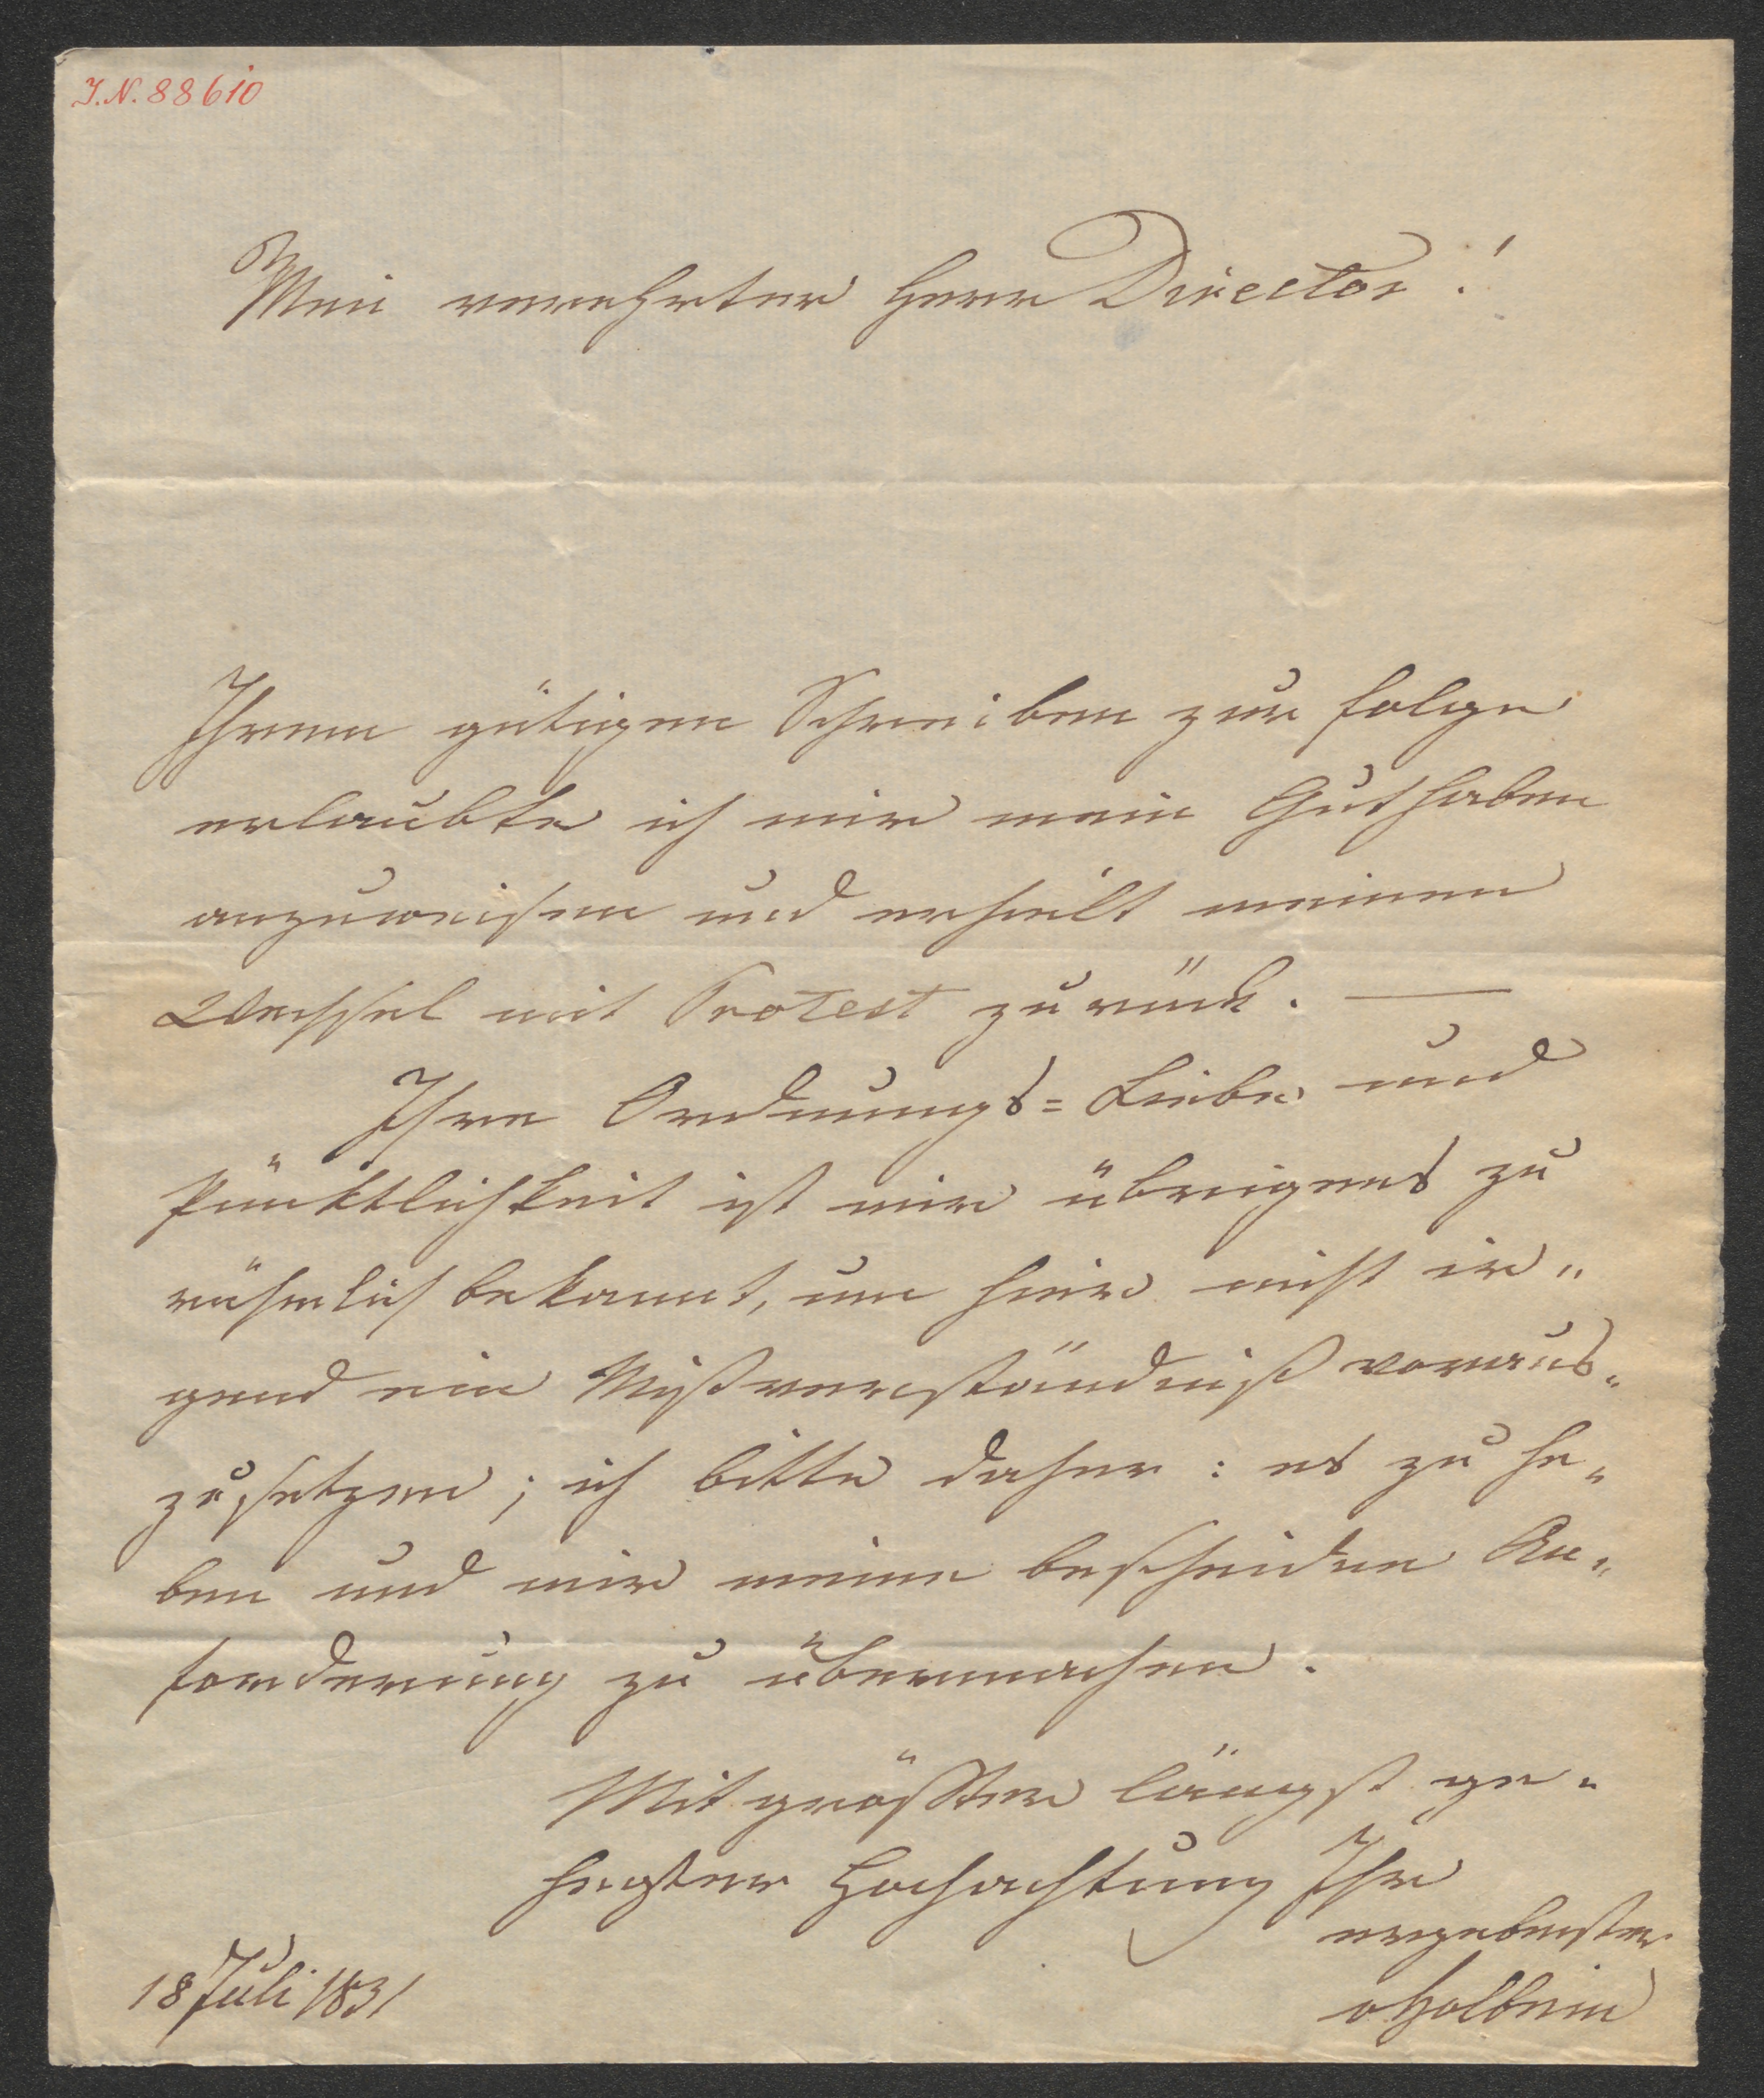 I.N. 88610
Mein verehrter Herr Director!
Ihrem gütigen Schreiben zur Folge
erlaubte ich mir mein Guthaben
anzuweisen und erhielt meinen
Wechsel mit Protest zurück. —
Ihre Ordnungs=Liebe und
Pünktlichkeit ist mir übrigens zu
rühmlich bekannt, um hier nicht ir„
gend ein Mißverständniß voraus„
zusetzen; ich bitte daher: es zu he„
ben und mir meine bescheidene An„
forderung zu übermachen.
Mit größter längst ge„
hegter Hochachtung Ihr
ergebenster
vHolbein
18 Juli 1831